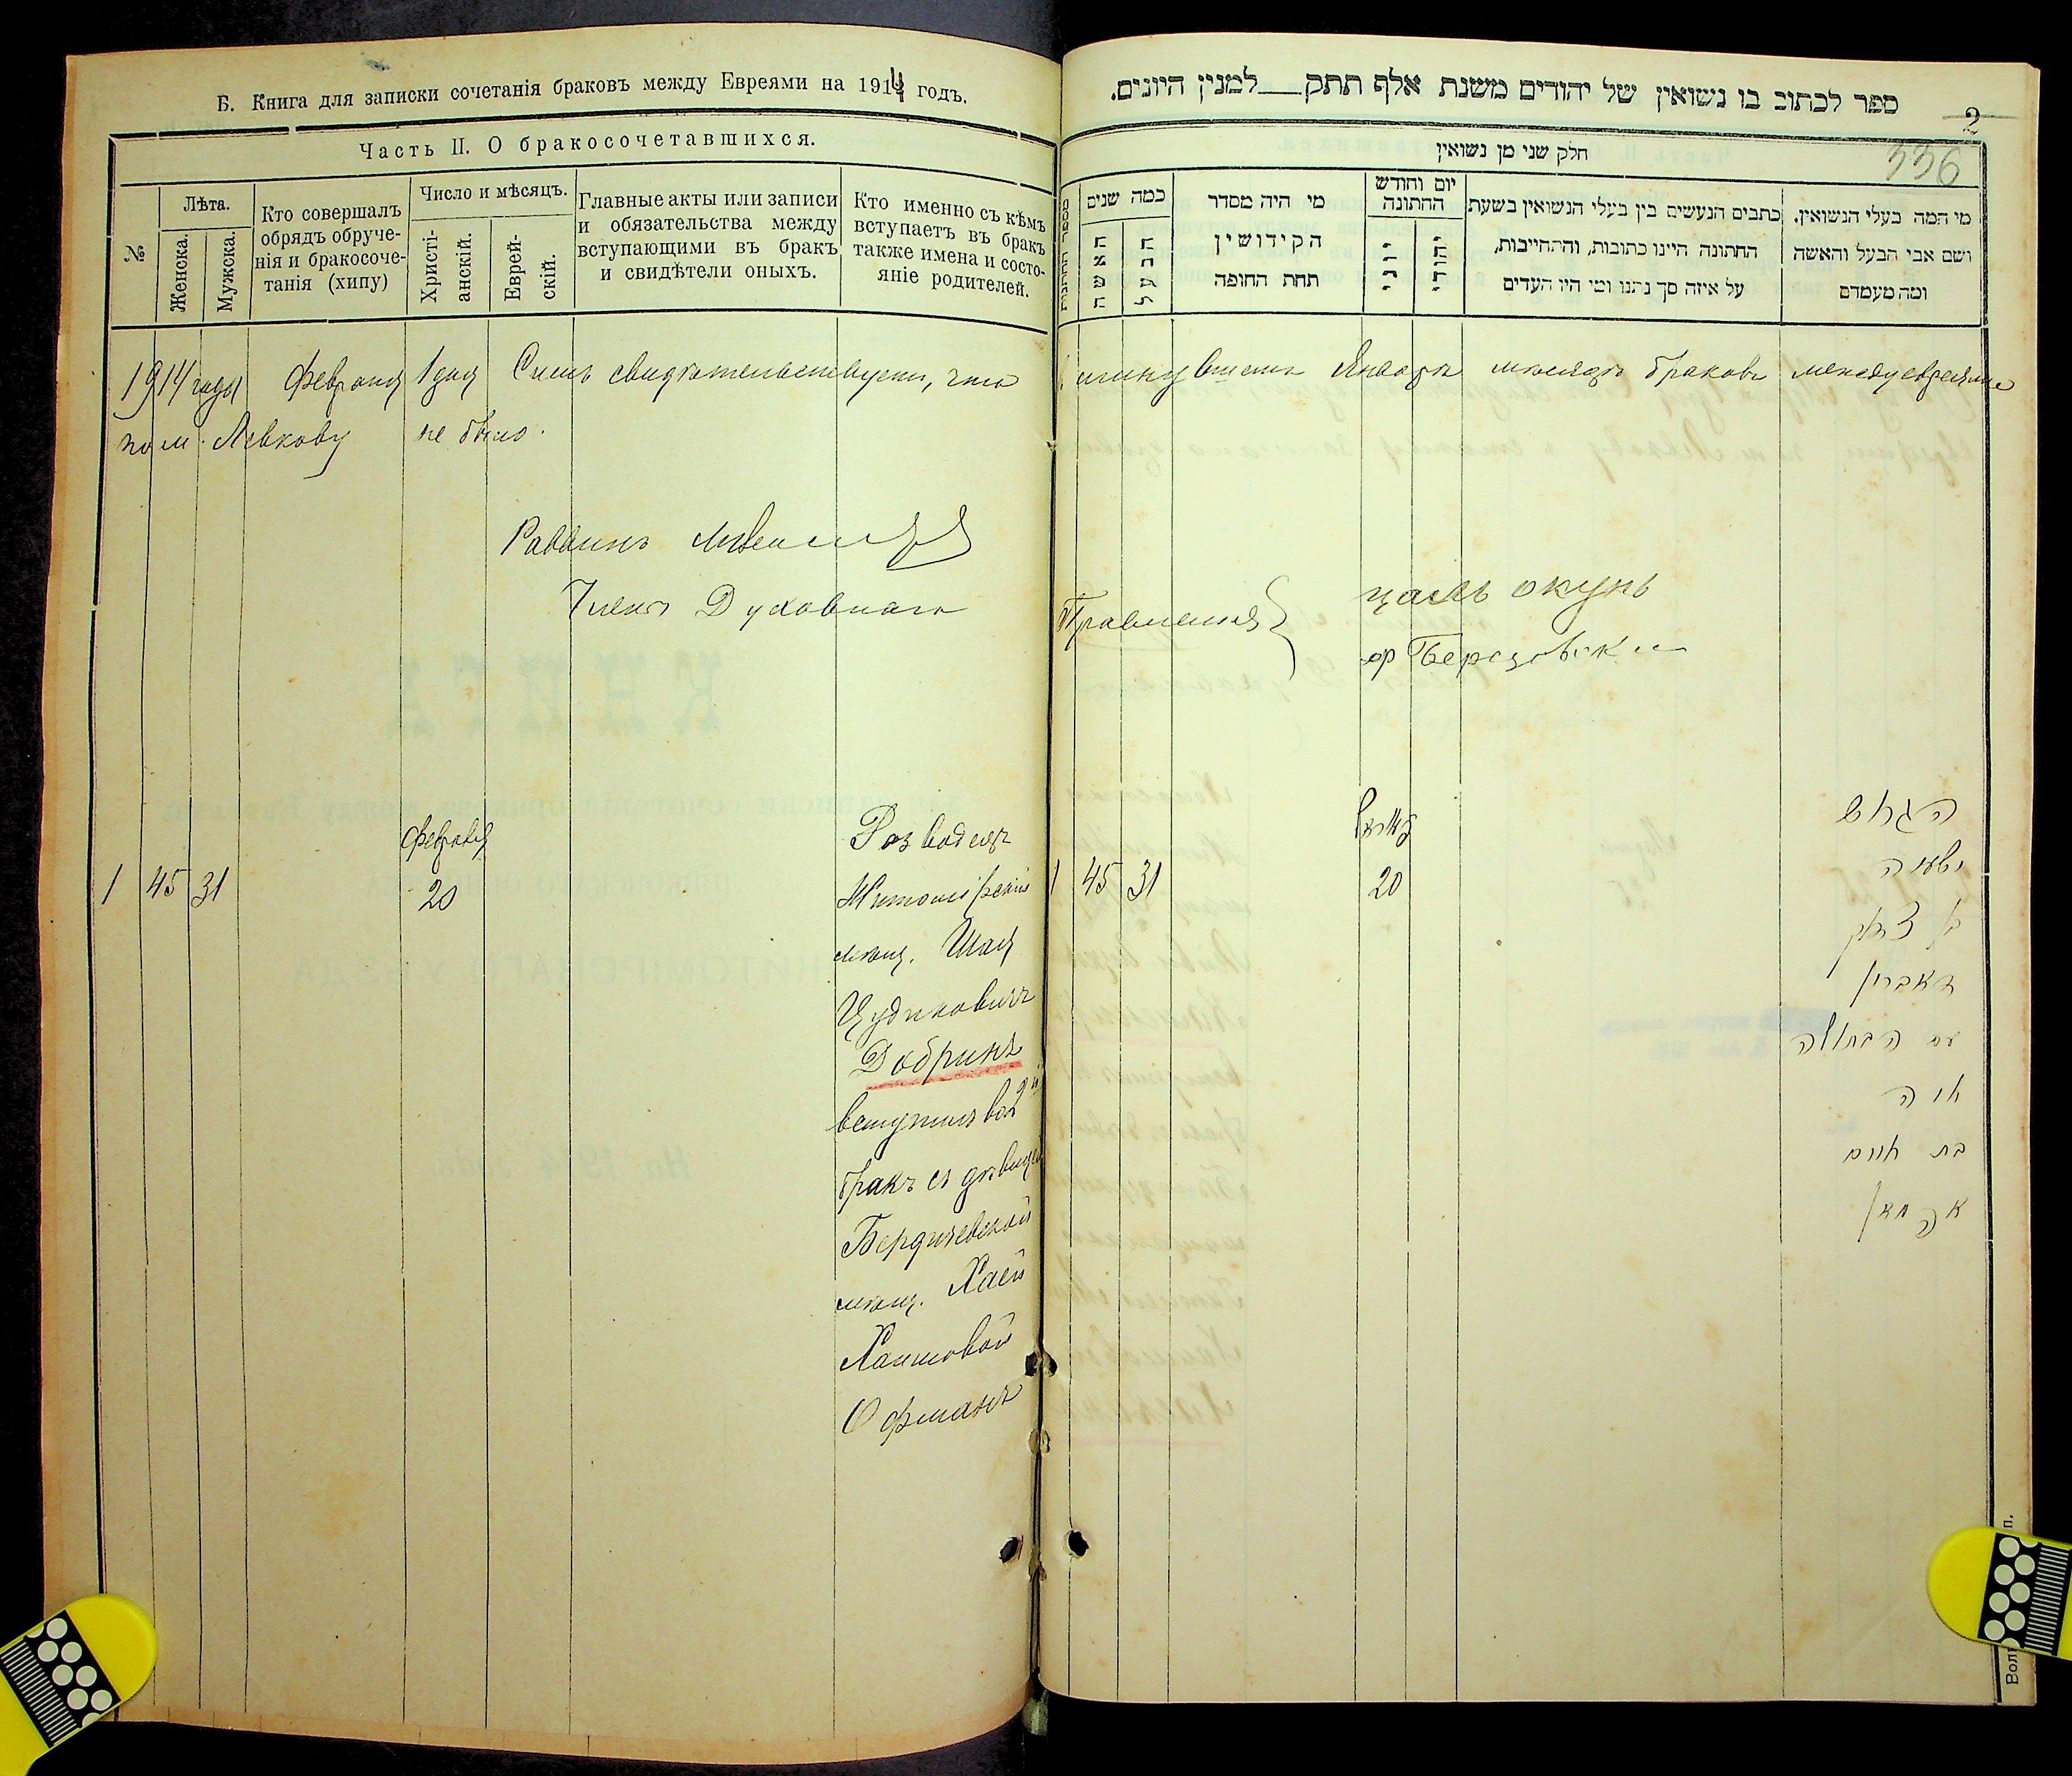 Б. Книга для записки сочетанія браковъ между Евреями на 1914 годъ.
Часть II. О бракосочетавшихся.
№
Лѣта.
Женска.
Мужска.
Кто совершалъ
обрядъ обруче-
нія и бракосоче-
танія (хипу)
Число и мѣсяцъ.
Христі-
анскій.
Еврей-
скій.
Главные акты или записи
и обязательства между
вступающими въ бракъ
и свидѣтели оныхъ.
Кто именно съ кѣмъ
вступаетъ въ бракъ
также имена и состо-
яніе родителей.
1914 года Февраля 1 дня Симъ свидѣтельствуемъ, что
по м. Левкову не было.
Раввинъ
Члены Духовнаго
Февраля
1 45 31 20
Разводецъ
Житомірскій
мѣщ. Шая
Цудиковичъ
Добринъ
вступилъ во 2й
бракъ съ дѣвицей
Бердичевской
мѣщ. Хаей
Хаимовой
Офманъ
ספר לכתוב בו נשואין של יהודים משנת אלף תתק למנין היונים.
2
336
חלק שני מן נשואין
מספר החתונות
כמה שנים
האשה
הבעל
מי היה מסדר
הקידושין
תחת החופה
יום וחודש
החתונה
יוני
יהודי
כתבים הנעשים בין בעלי הנשואין בשעת
החתונה היינו כתובות, והתחייבות,
על איזה סך נתנו ומי היו העדים
מי המה בעלי הנשואין,
ושם אבי הבעל והאשה
ומה מעמדם
минувшемъ Январѣ мѣсяцѣ браковъ между евреями
Правленія
цаль окунь
ор Березовскій
1 45 31 20
הגרוש
ישעיה
בן צודיק
דאברין
עם הבתולה
חיה
בת חיים
Вол
п.